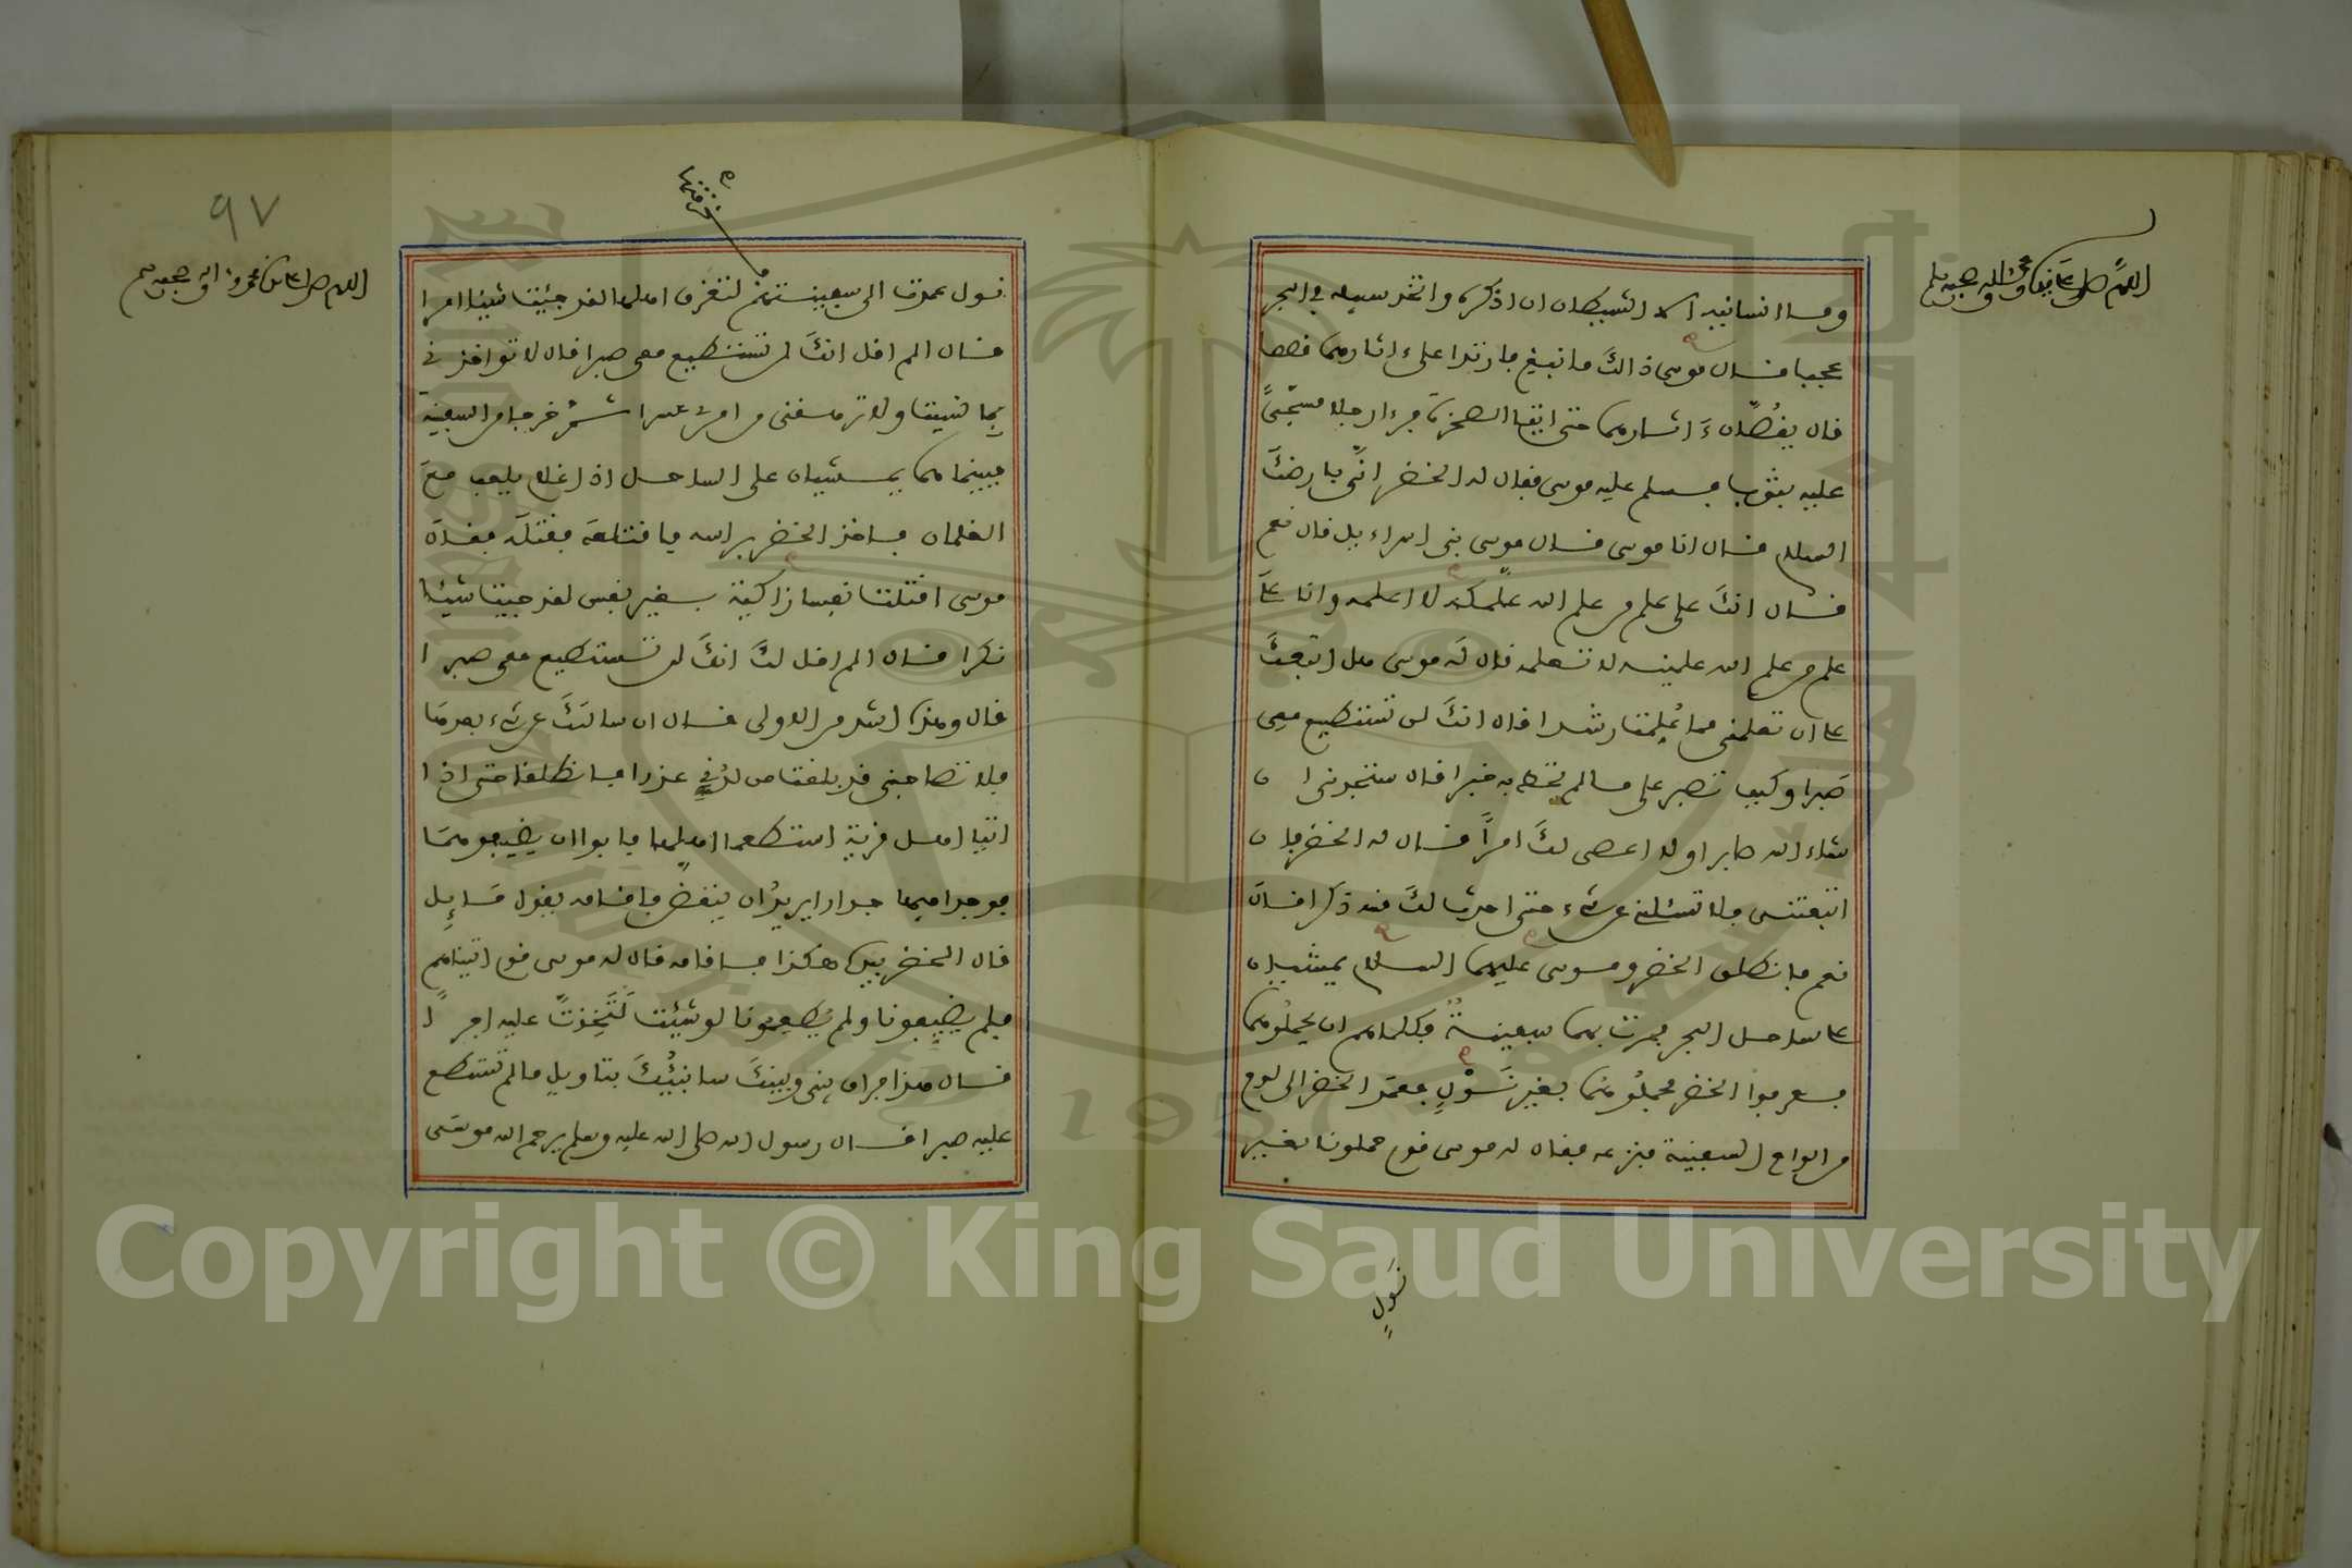 اللهم صل على نبينا محمد وءاله وصحبه وسلم
وما انسانيه الا الشيطان ان اذكره واتخذ سبيله في البحر
عجبا فقال موسى ذالك ما نبغ فارتدا على ءاثارهما قصصا
قال يقصان ءاثارهما حتى اتيا الصخرة فرءا رجلا مسجى
عليه بثوب فسلم عليه موسى فقال له الخضر انى بارضك
السلام فقال انا موسى فقال موسى بنى اسراءيل قال نعم
فقال انك على علم من علم الله علمكه لا اعلمه وانا على
علم من علم الله علمنيه لا تعلمه قال له موسى هل اتبعك
على ان تعلمنى مما علمت رشدا قال انك لن تستطيع معى
صبرا وكيف تصبر على ما لم تحط به خبرا قال ستجدونى ان
شاء الله صابرا ولا اعصى لك امرا فقال له الخضر فان
اتبعتنى فلا تسئلنى عن شىء حتى احدث لك منه ذكرا قال
نعم فانطلق الخضر وموسى عليهما السلام يمشيان
على ساحل البحر فمرت بهما سفينة فكلماهم ان يحملوهما
فعرفوا الخضر فحملوهما بغير نول فعمد الخضر الى لوح
من الواح السفينة فنزعه فقال له موسى قوم حملونا بغير
نول
٩٧
اللهم صل على نبينا محمد وءاله وصحبه وسلم
خرقتها
نول عمدت الى سفينتهم لتغرق اهلها لقد جئت شيئا امرا
قال الم اقل انك لن تستطيع معى صبرا قال لا تواخذنى
بما نسيت ولا ترهقنى من امرى عسرا ثم خرجا من السفينة
فبينما هما يمشيان على الساحل اذا غلام يلعب مع
الغلمان فاخذ الخضر براسه فاقتلعه فقتله فقال
موسى اقتلت نفسا زاكية بغير نفس لقد جيت شيئا
نكرا قال الم اقل لك انك لن تستطيع معى صبرا
قال وهذا اشد من الاولى قال ان سالتك عن شىء بعدها
فلا تصاحبنى قد بلغت من لدنى عذرا فانطلقا حتى اذا
اتيا اهل قرية استطعما اهلها فابوا ان يضيفوهما
فوجدا فيها جدارا يريد ان ينقض فاقامه يقول مايل
قال الخضر بيده هكذا فاقامه قال له موسى قوم اتيناهم
فلم يضيفونا ولم يطعمونا لو شئت لتخذت عليه اجرا
قال هذا فراق بينى وبينك سانبئك بتاويل ما لم تستطع
عليه صبرا قال رسول الله صلى الله عليه وسلم يرحم الله موسى
Copyright © King Saud University
1957